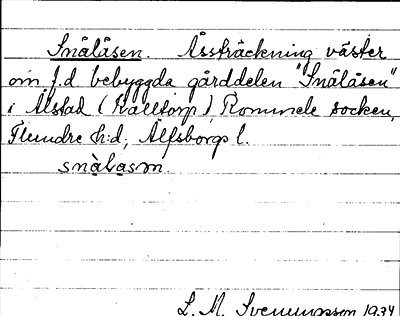 Snålåsen. Åssträckning väster
om f.d bebyggda gårddelen "Snålåsen"
i Ålstad (Kalltorp) Rommele socken,
Flundre h:d, Älfsborgs l.
snålåsən.
L. M. Svenungsson 1934